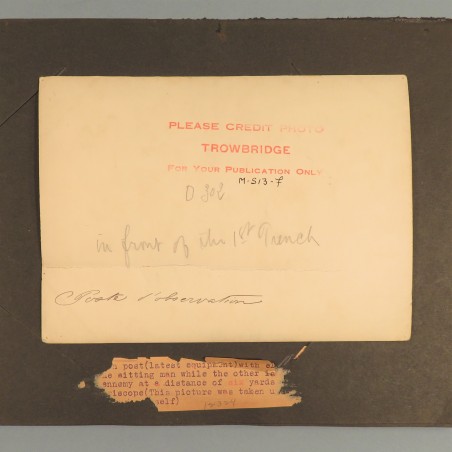 PLEASE CREDIT PHOTO
TROWBRIDGE
FOR YOUR PUBLICATION ONLY
M-513-F
in front of the 1st Trench
Poste d'observation
post(latest equipment)with
sitting man while the other
ennemy at a distance of six yards
iscope(This picture was taken u
self)